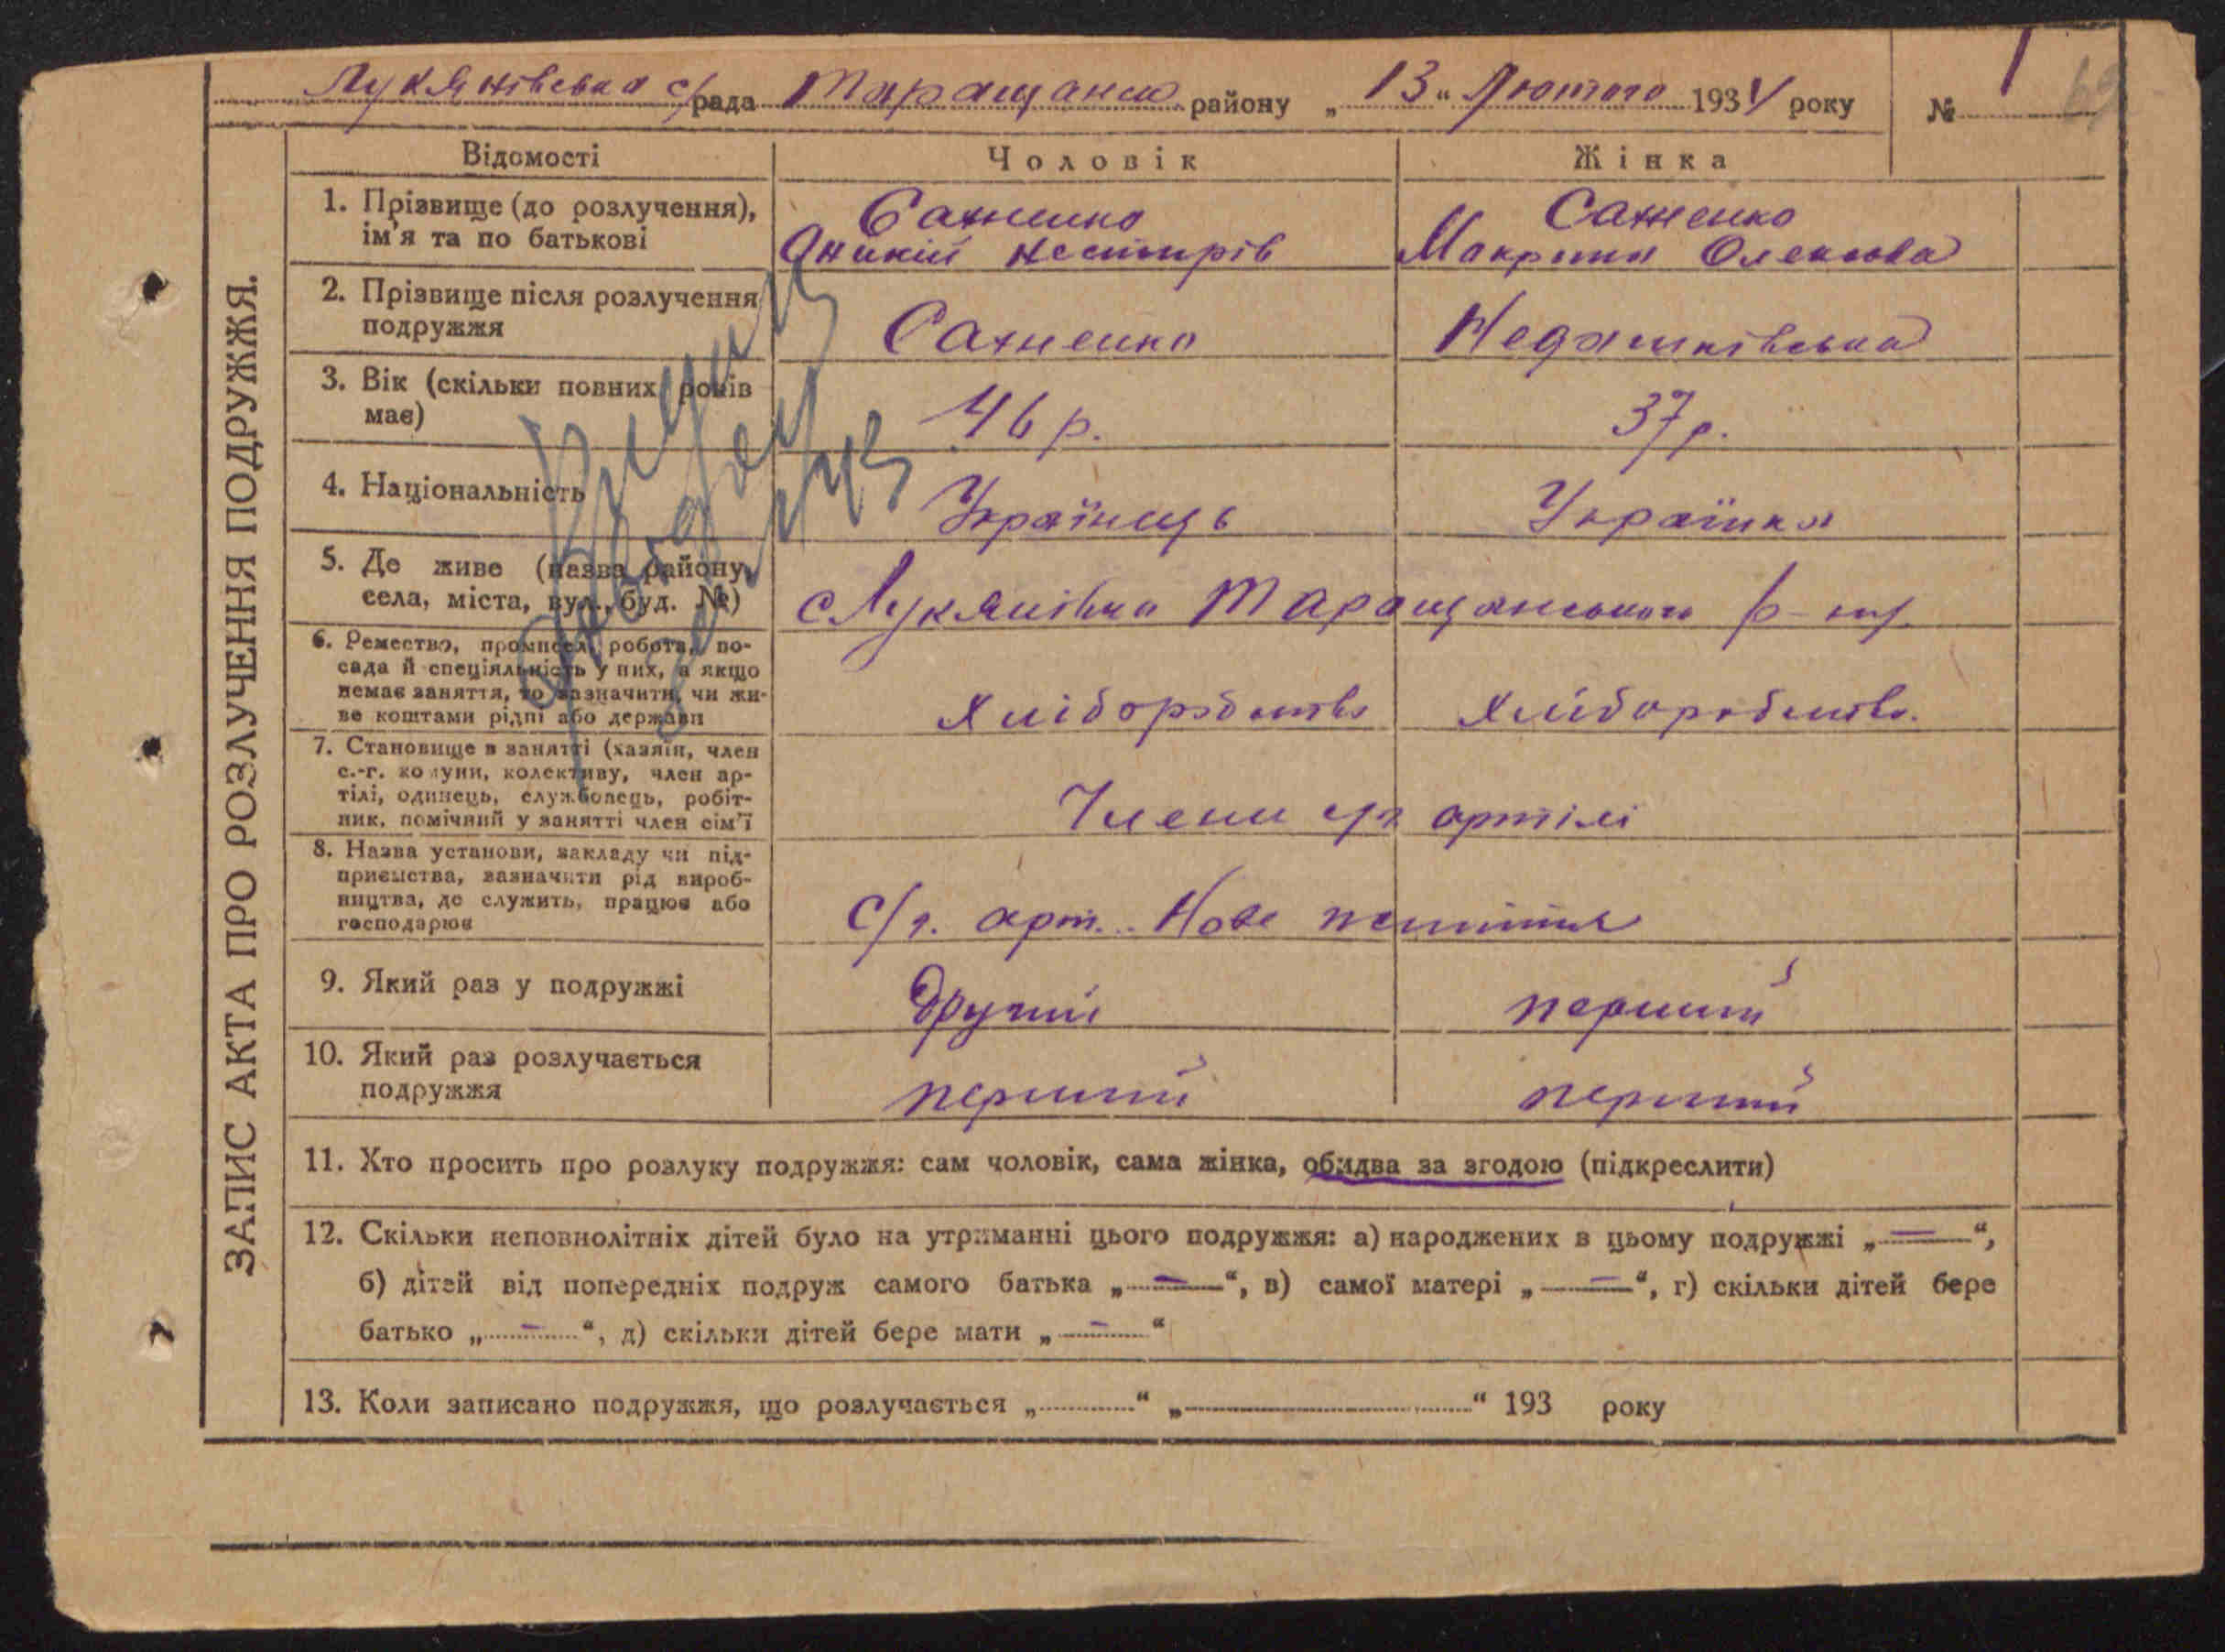 Лукянівська с/рада Таращанск. району „13“ Лютого 1934 року № 1
69
ЗАПИС АКТА ПРО РОЗЛУЧЕННЯ ПОДРУЖЖЯ.
Відомості Чоловік Жінка
1. Прізвище (до розлучення), ім'я та по батькові
Сахненко Сахненко
Оникій Несторів Макрина Олексова
2. Прізвище після розлучення подружжя
Сахненко Недашківська
3. Вік (скільки повних років має)
46 р. 37 р.
4. Національність
Українець Українка
5. Де живе (назва району, села, міста, вул., буд. №)
с Лукянівка Таращанського р-ну
6. Ремество, промисел, робота, по-
сада й спеціяльність у них, а якщо
немає заняття, то зазначити, чи жи-
ве коштами рідні або держави
Хліборобство Хліборобство.
7. Становище в занятті (хазяїн, член
с.-г. комуни, колективу, член ар-
тілі, одинець, службовець, робіт-
ник, помічний у занятті член сім'ї
Члени с/г артілі
8. Назва установи, закладу чи під-
приємства, зазначити рід вироб-
ництва, де служить, працює або
господарює
С/г. арт. Нове життя
9. Який раз у подружжі
другий перший
10. Який раз розлучається подружжя
перший перший
11. Хто просить про розлуку подружжя: сам чоловік, сама жінка, обидва за згодою (підкреслити)
12. Скільки неповнолітніх дітей було на утриманні цього подружжя: а) народжених в цьому подружжі „—“,
б) дітей від попередніх подруж самого батька „—“, в) самої матері „—“, г) скільки дітей бере
батько „—“, д) скільки дітей бере мати „—“
13. Коли записано подружжя, що розлучається „............“ „............“ 193 року